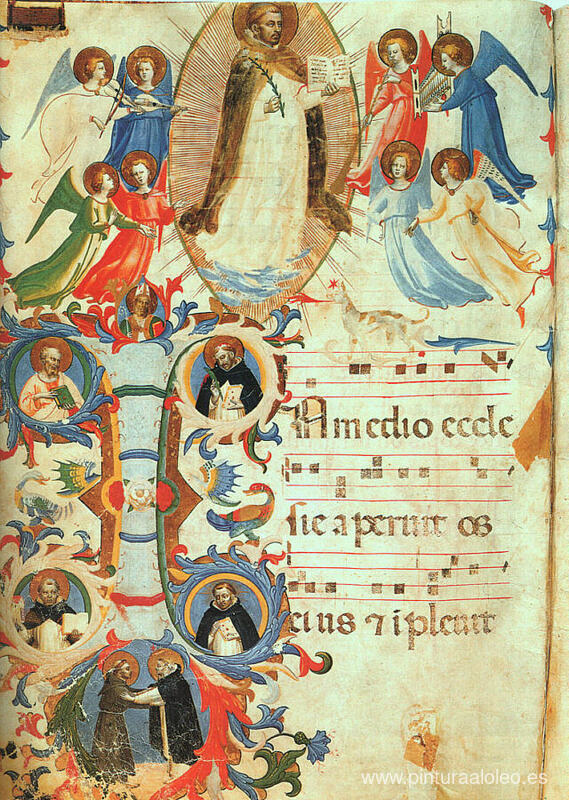 IN medio eccle
sie aperuit os
eius ⁊ ipleuit
www.pinturaaloleo.es